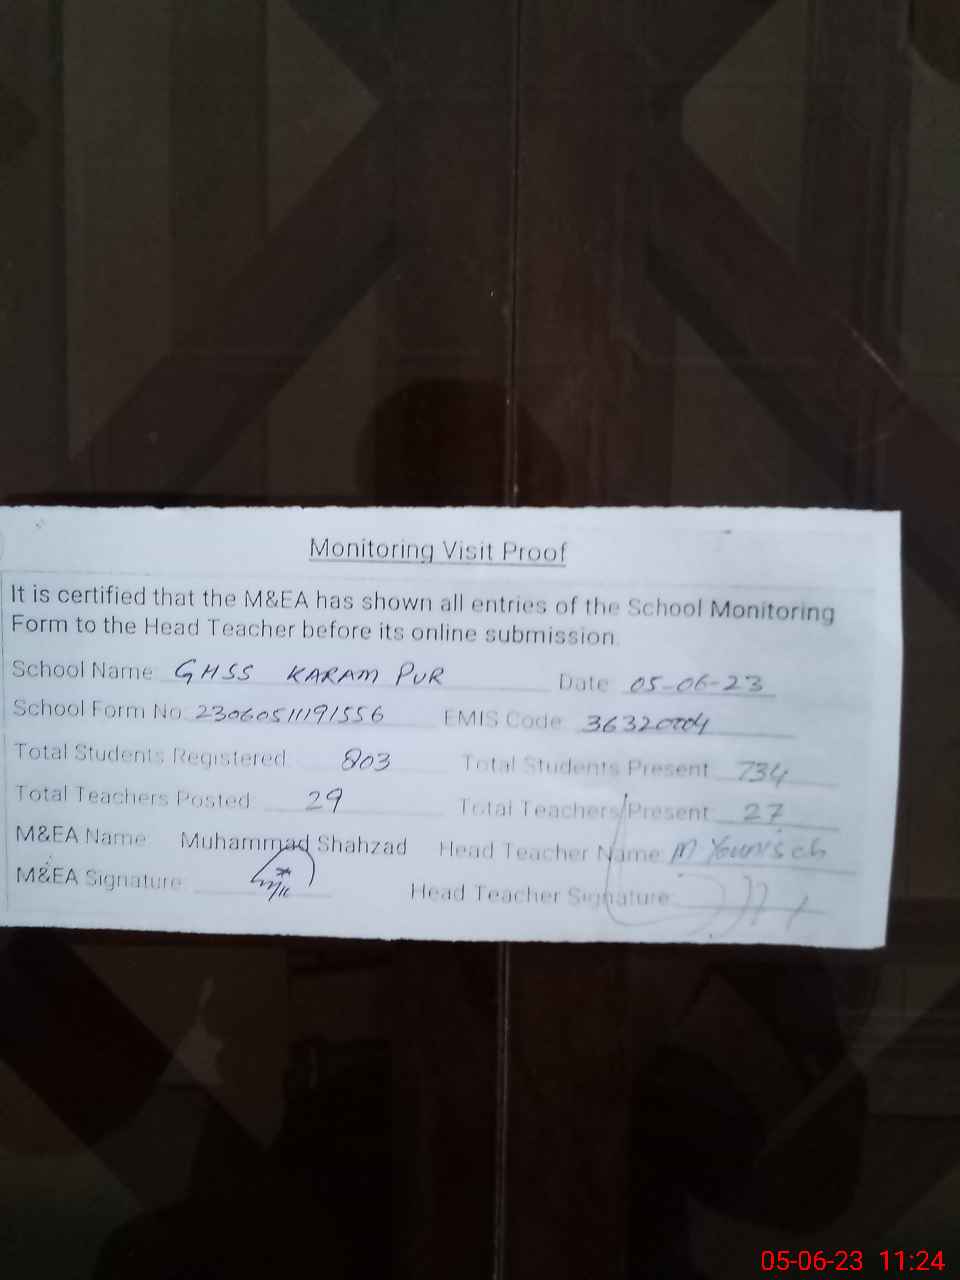 Monitoring Visit Proof
It is certified that the M&EA has shown all entries of the School Monitoring
Form to the Head Teacher before its online submission.
School Name: GHSS KARAM PUR Date: 05-06-23
School Form No: 23060511191556 EMIS Code: 36320004
Total Students Registered: 803 Total Students Present: 734
Total Teachers Posted: 29 Total Teachers Present: 27
M&EA Name: Muhammad Shahzad Head Teacher Name: M Younis ch
M&EA Signature: Head Teacher Signature:
05-06-23 11:24